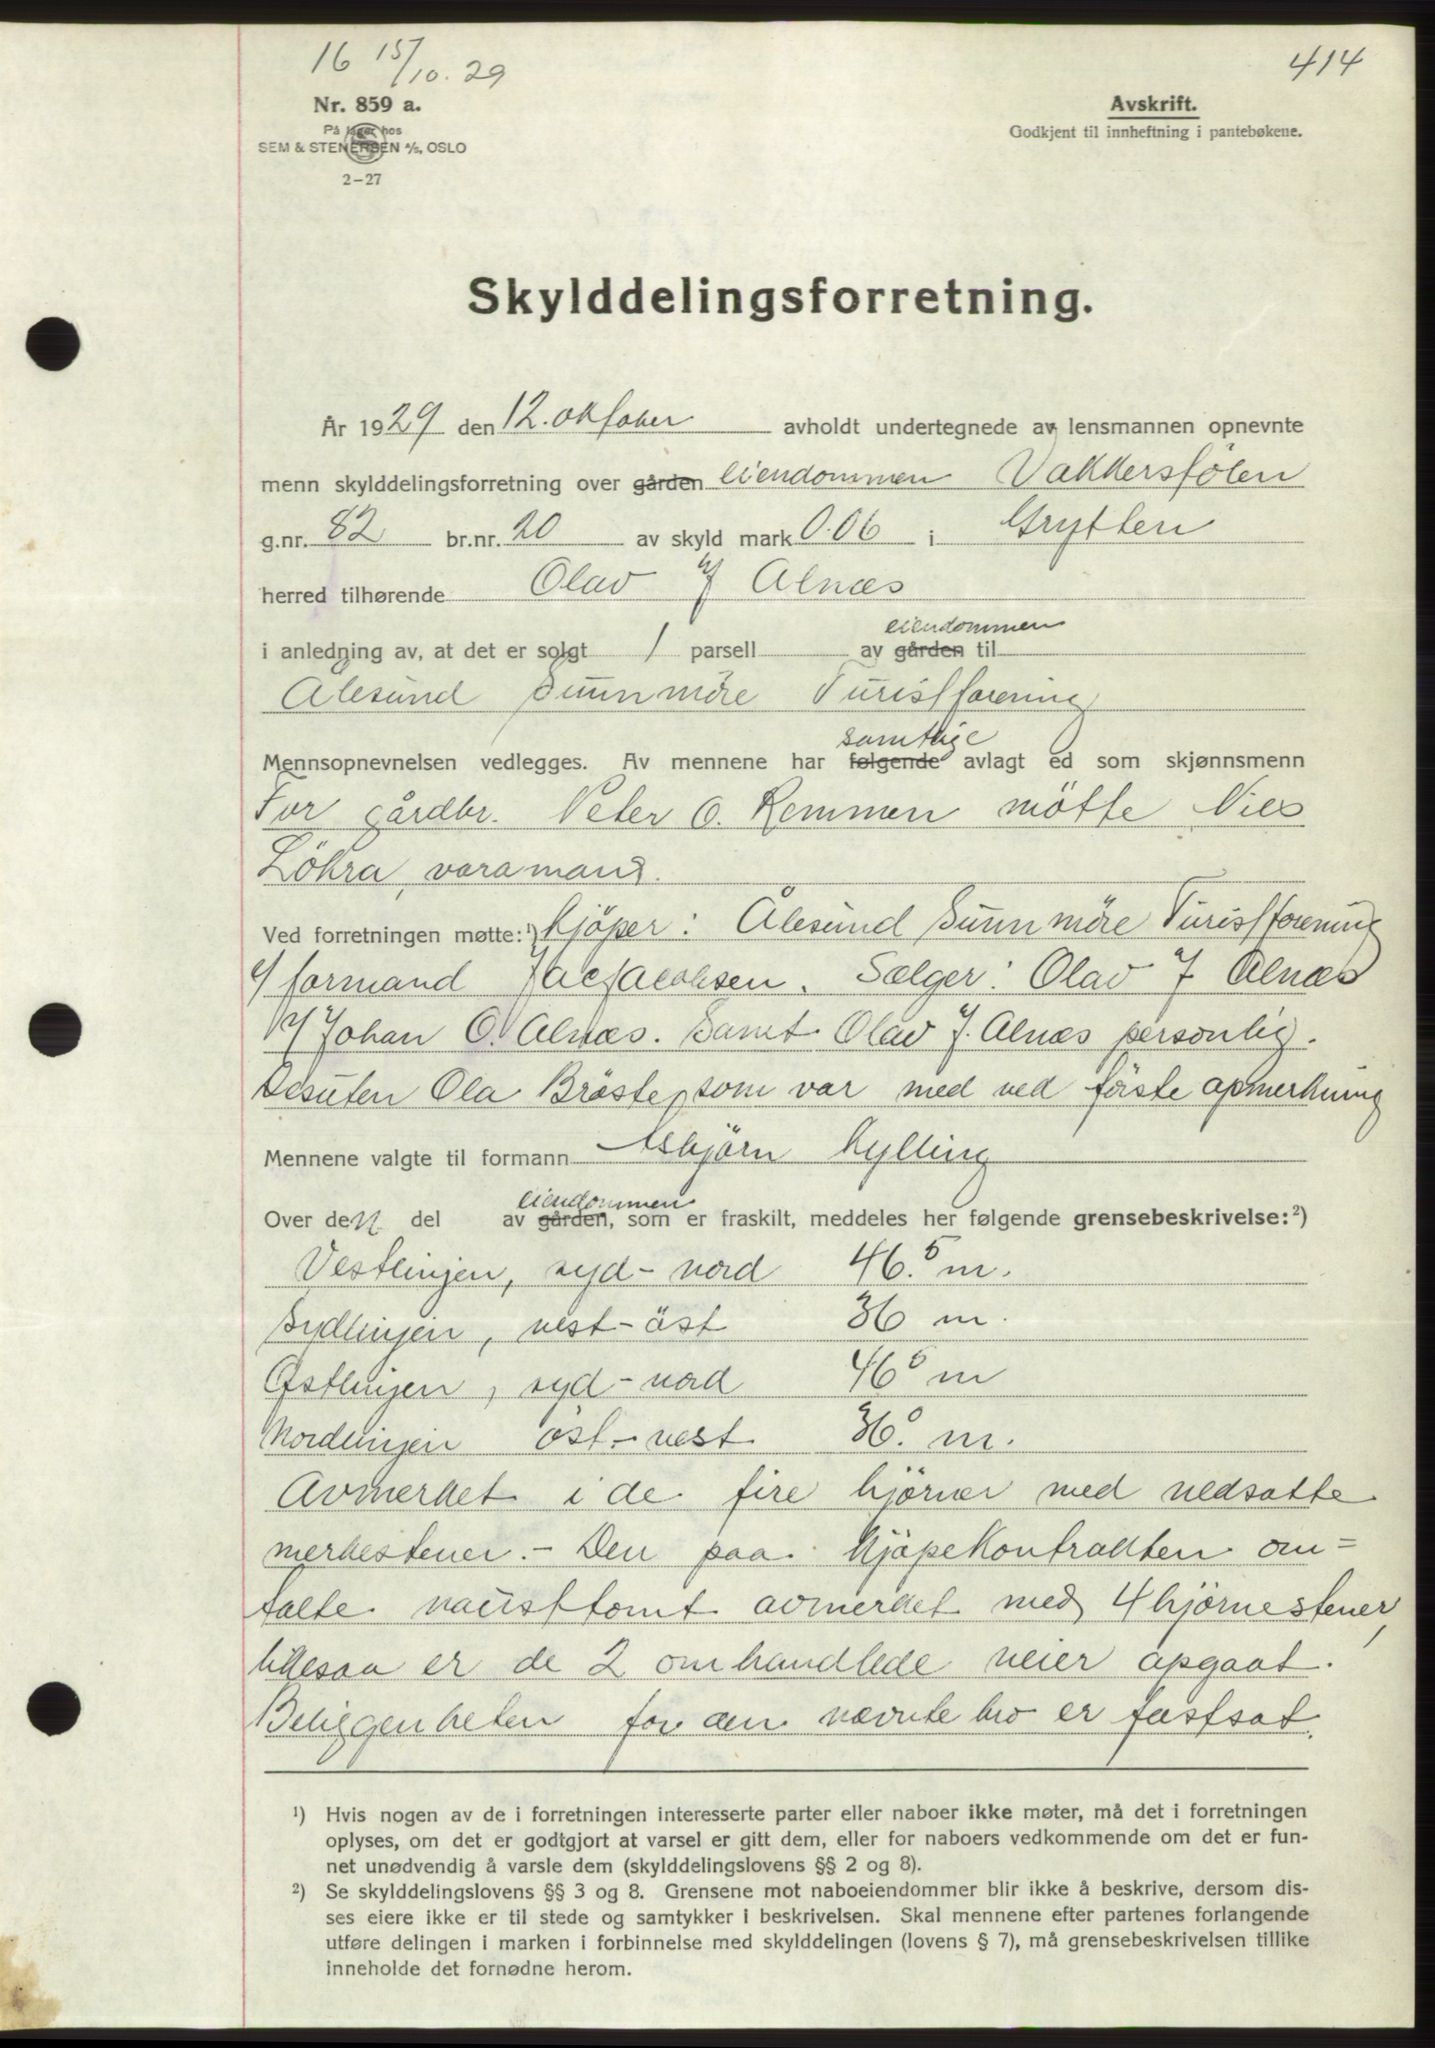 16 15/10.29
414
Nr. 859 a.
På lager hos
SEM & STENERSEN A/S, OSLO
2–27
Avskrift.
Godkjent til innheftning i pantebøkene.
Skylddelingsforretning.
År 1929 den 12. oktober avholdt undertegnede av lensmannen opnevnte
menn skylddelingsforretning over gården eiendommen Vakkersfölen
g.nr. 82 br.nr. 20 av skyld mark 0.06 i Grytten
herred tilhørende Olav J Alnæs
eiendommen
i anledning av, at det er solgt 1 parsell av gården til
Ålesund Sunnmöre Turistforening
samtlige
Mennsopnevnelsen vedlegges. Av mennene har følgende avlagt ed som skjønnsmenn
For gårdbr. Peter O. Remmen mötte Niels
Lökra, varamand.
Ved forretningen møtte:¹) Kjöper: Ålesund Sunnmöre Turistforening
v/ formand Jac Jacobsen. Sælger: Olav J Alnæs
v/ Johan O. Alnæs. Samt Olav J. Alnæs personlig.
desuten Ola Bröste, som var med ved förste opmerkning
Mennene valgte til formann Asbjörn Kylling
eiendommen
Over den del av gården, som er fraskilt, meddeles her følgende grensebeskrivelse:²)
Vestlinjen, syd - nord 46.5 m.
Sydlinjen, vest - öst 36 m.
Østlinjen, syd - nord 46 5 m
Nordlinjen öst - vest 36.0 m.
Avmerket i de fire hjörner med nedsatte
merkestener. - Den paa Kjöpekontrakten om=
talte nausttomt avmerket med 4 hjörnestener,
likesaa er de 2 omhandlede veier opgaat.
Beliggenheten for den nævnte bro er fastsat.
¹) Hvis nogen av de i forretningen interesserte parter eller naboer ikke møter, må det i forretningen
oplyses, om det er godtgjort at varsel er gitt dem, eller for naboers vedkommende om det er fun-
net unødvendig å varsle dem (skylddelingslovens §§ 2 og 8).
²) Se skylddelingslovens §§ 3 og 8. Grensene mot naboeiendommer blir ikke å beskrive, dersom dis-
ses eiere ikke er til stede og samtykker i beskrivelsen. Skal mennene efter partenes forlangende
utføre delingen i marken i forbinnelse med skylddelingen (lovens § 7), må grensebeskrivelsen tillike
inneholde det fornødne herom.